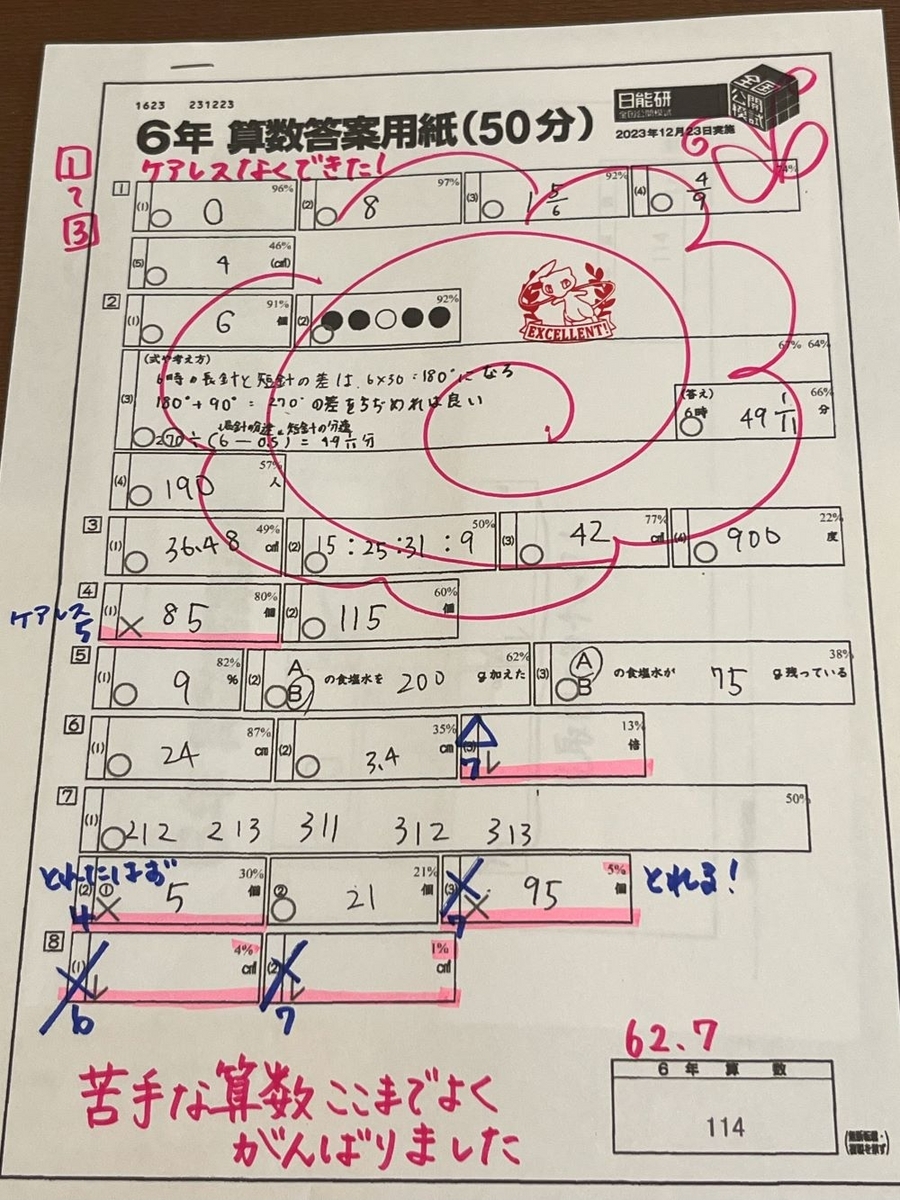 1623 231223
6年 算数答案用紙(50分)
日能研
全国公開模試
全国公開模試
2023年12月23日実施
ケアレスなくできた!
1
〜
3
1 (1) 0 96% (2) 8 97% (3) 1 5/6 92% (4) 4/9 74%
(5) 4 (cm) 46%
2 (1) 6 個 91% (2) ●●○●● 92%
EXCELLENT!
(3) (式や考え方) 67% 64%
6時の長針と短針の差は、6×30=180°になる
180°+90°=270°の差をちぢめれば良い
長針の分速 短針の分速
270÷(6-0.5)=49 1/11分
(答え) 6時 49 1/11 分 66%
(4) 190 人 57%
3 (1) 36.48 49% (2) 15:25:31:9 50% (3) 42 77% (4) 900 度 22%
ケアレス
5
4 (1) 85 個 80% (2) 115 個 60%
5 (1) 9 % 82% (2) A B の食塩水を 200 g加えた 62% (3) A B の食塩水が 75 g残っている 38%
6 (1) 24 cm 87% (2) 3.4 cm 35% (3) 7 倍 13%
7 (1) 212 213 311 312 313 50%
とれたはず
(2) ① 5 個 30% ② 21 個 21% (3) 95 個 5% とれる!
4 7
8 (1) 4% (2) 1%
6 7
62.7
6年 算数
114
苦手な算数ここまでよく
がんばりました